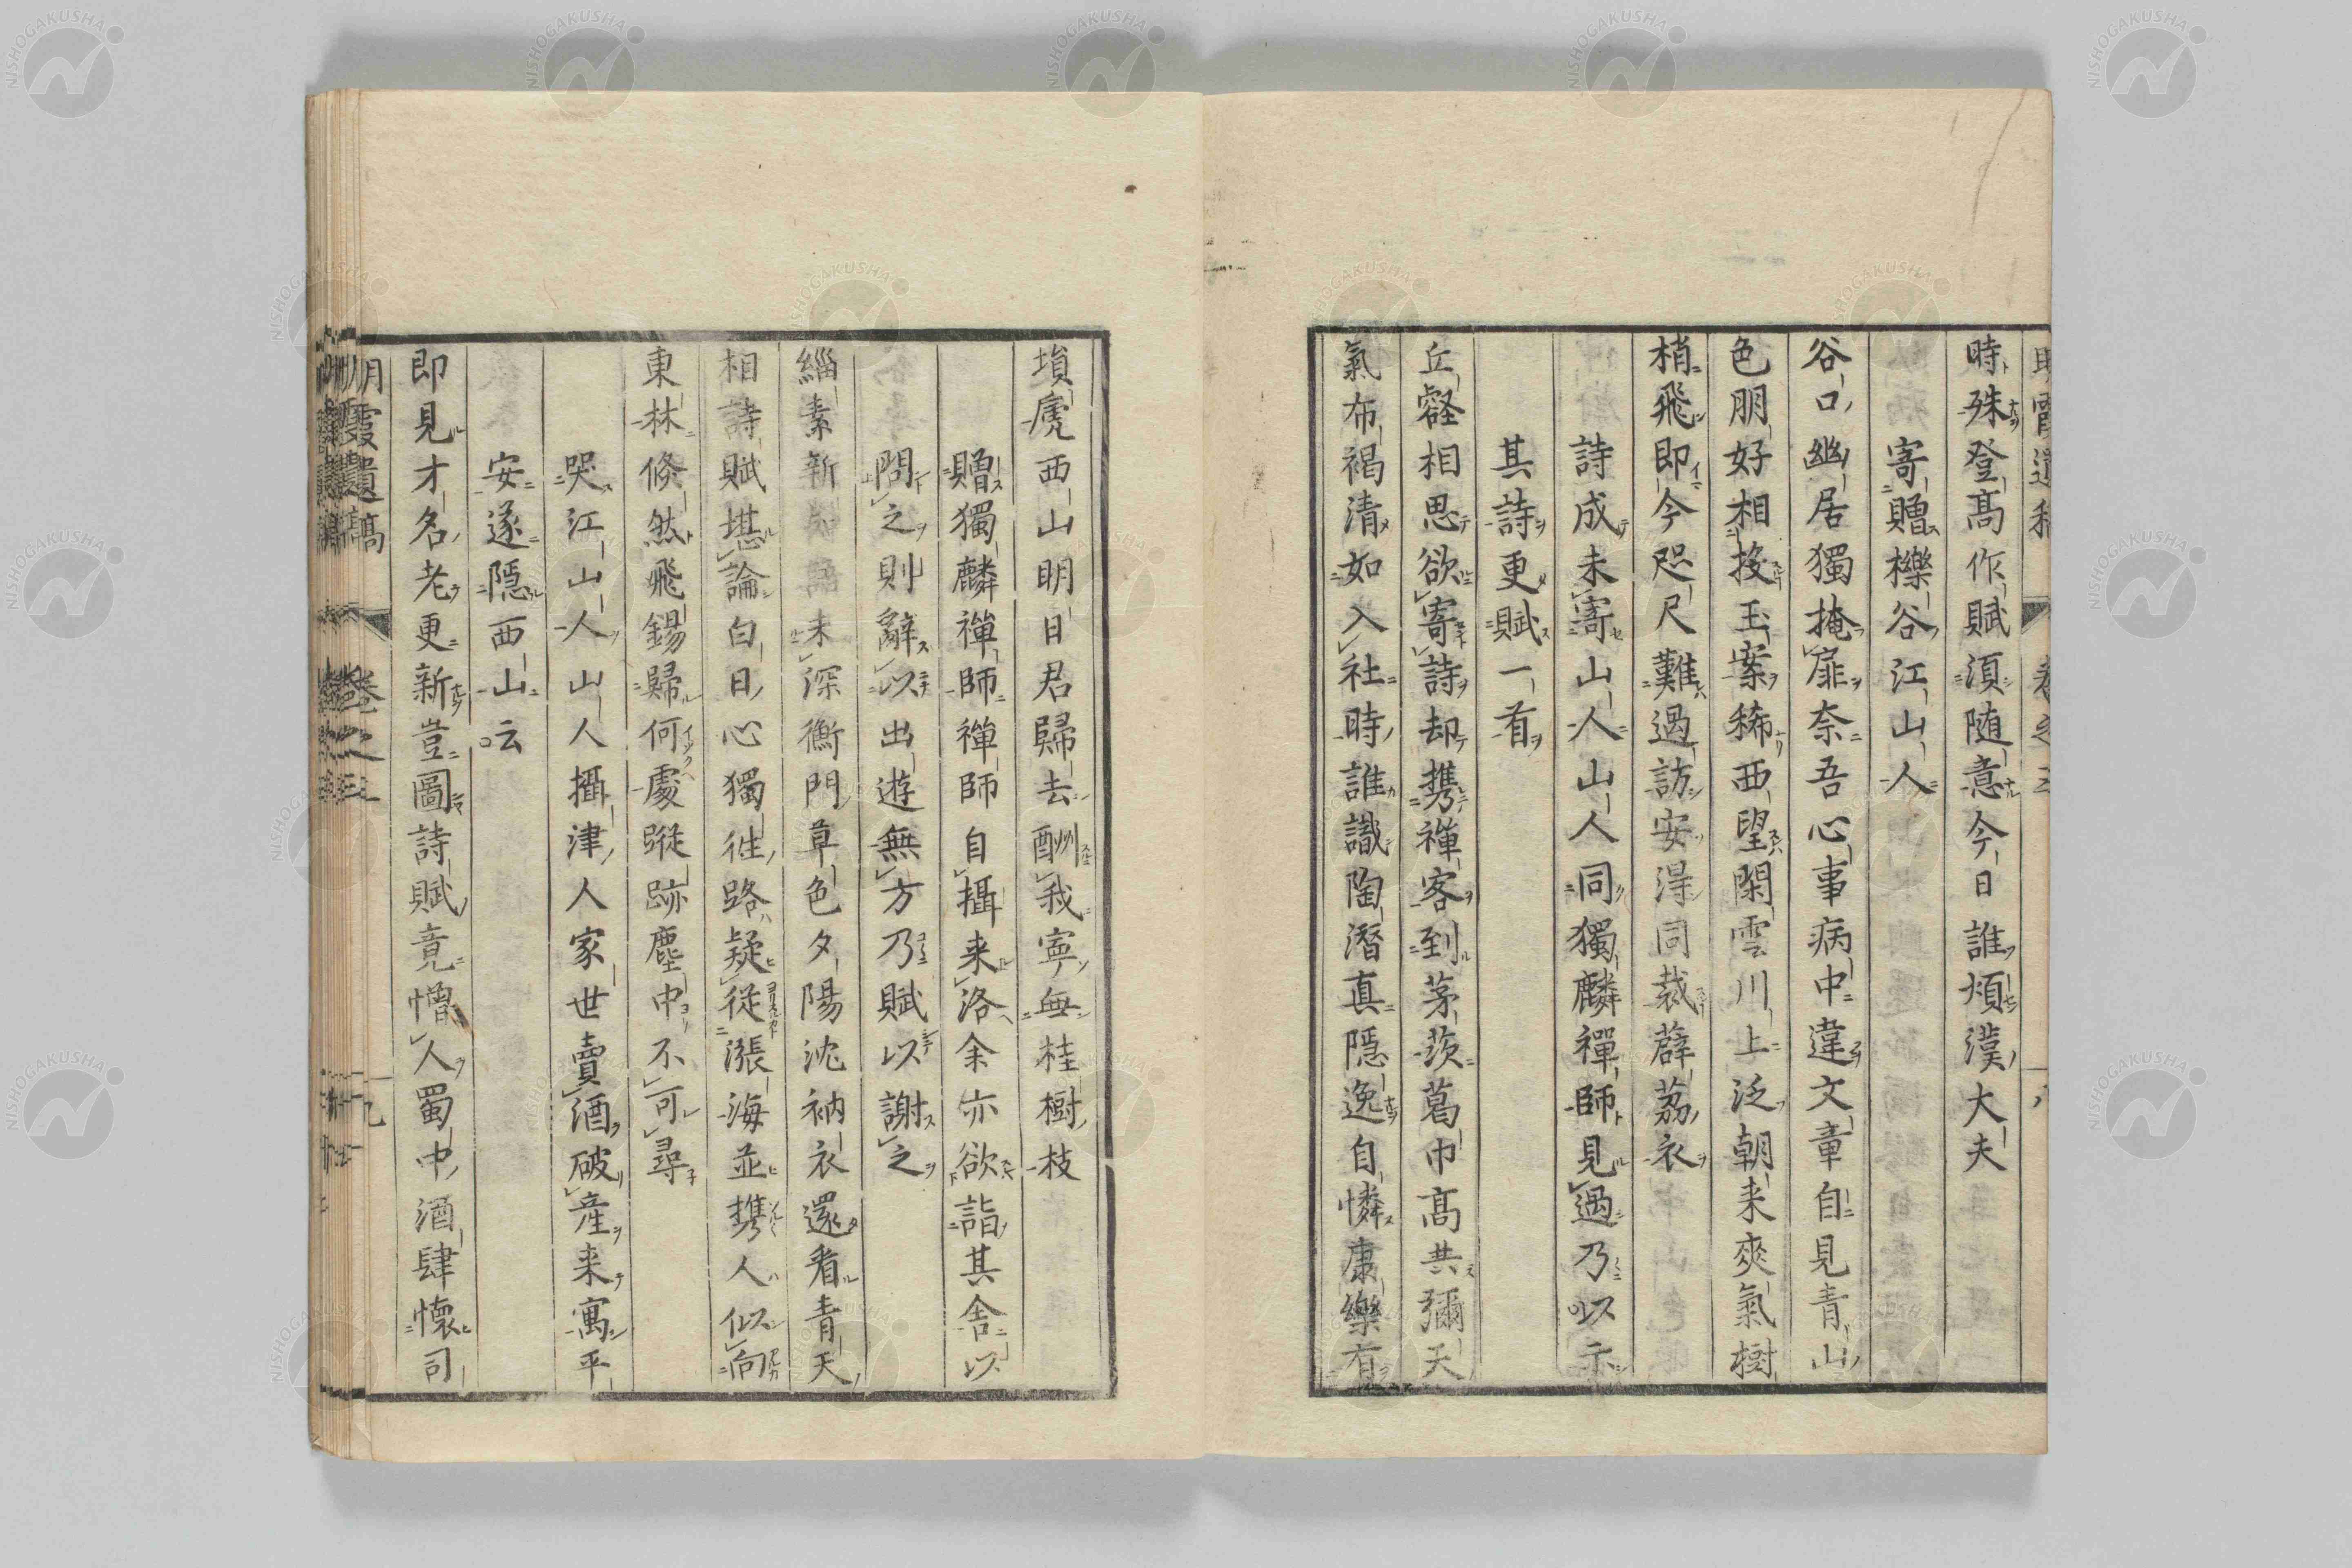 時殊登高作賦須随意今日誰煩漢大夫
寄贈櫟谷江山人
谷口幽居獨掩扉奈吾心事病中違文章自見青山
色朋好相投玉案稀西望閑雲川上泛朝来爽氣樹
梢飛即今咫尺難過訪安得同裁薜荔衣
詩成未寄山人山人同獨麟禪師見過乃以示
其詩更賦一有
丘壑相思欲寄詩却携禅客到茅茨葛巾高共彌天
氣布褐清如入社時誰識陶潛真隱逸自憐康樂有
塤篪西山明日君歸去酬我寧無桂樹枝
贈獨麟禪師禪師自攝来洛余亦欲詣其舎以
問之則辭以出遊無方乃賦以謝之
緇素新知話未深衡門草色夕陽沈衲衣還看青天
相詩賦堪論白日心獨徃路疑從漲海並携人似向
東林倏然飛錫歸何處蹤跡塵中不可尋
哭江山人山人攝津人家世賣酒破産来寓平
安遂隱西山云
即見才名老更新豈圖詩賦竟憎人蜀中酒肆懷司
明霞遺稿 卷之三 九